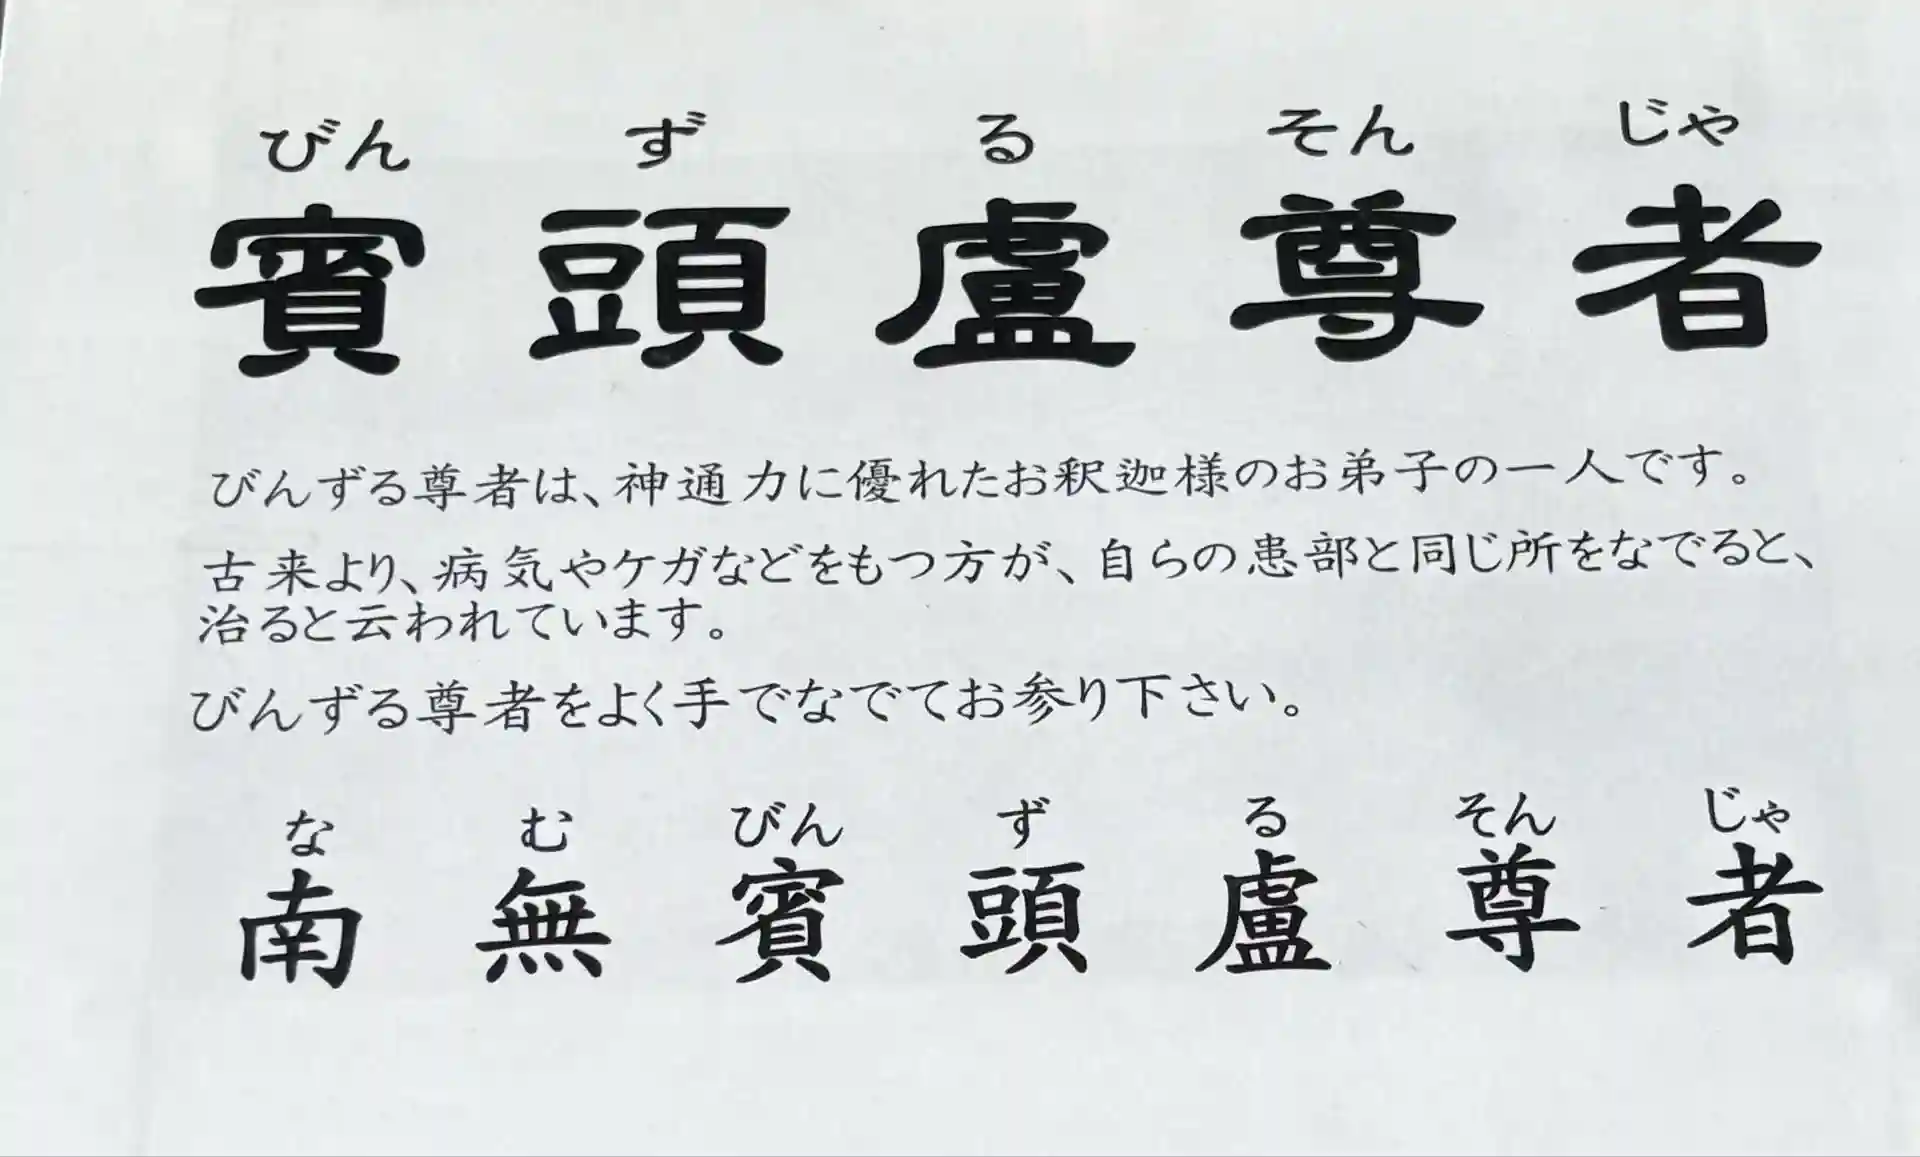 びん ず る そん じゃ
賓頭盧尊者
びんずる尊者は、神通力に優れたお釈迦様のお弟子の一人です。
古来より、病気やケガなどをもつ方が、自らの患部と同じ所をなでると、
治ると云われています。
びんずる尊者をよく手でなでてお参り下さい。
な む びん ず る そん じゃ
南無賓頭盧尊者